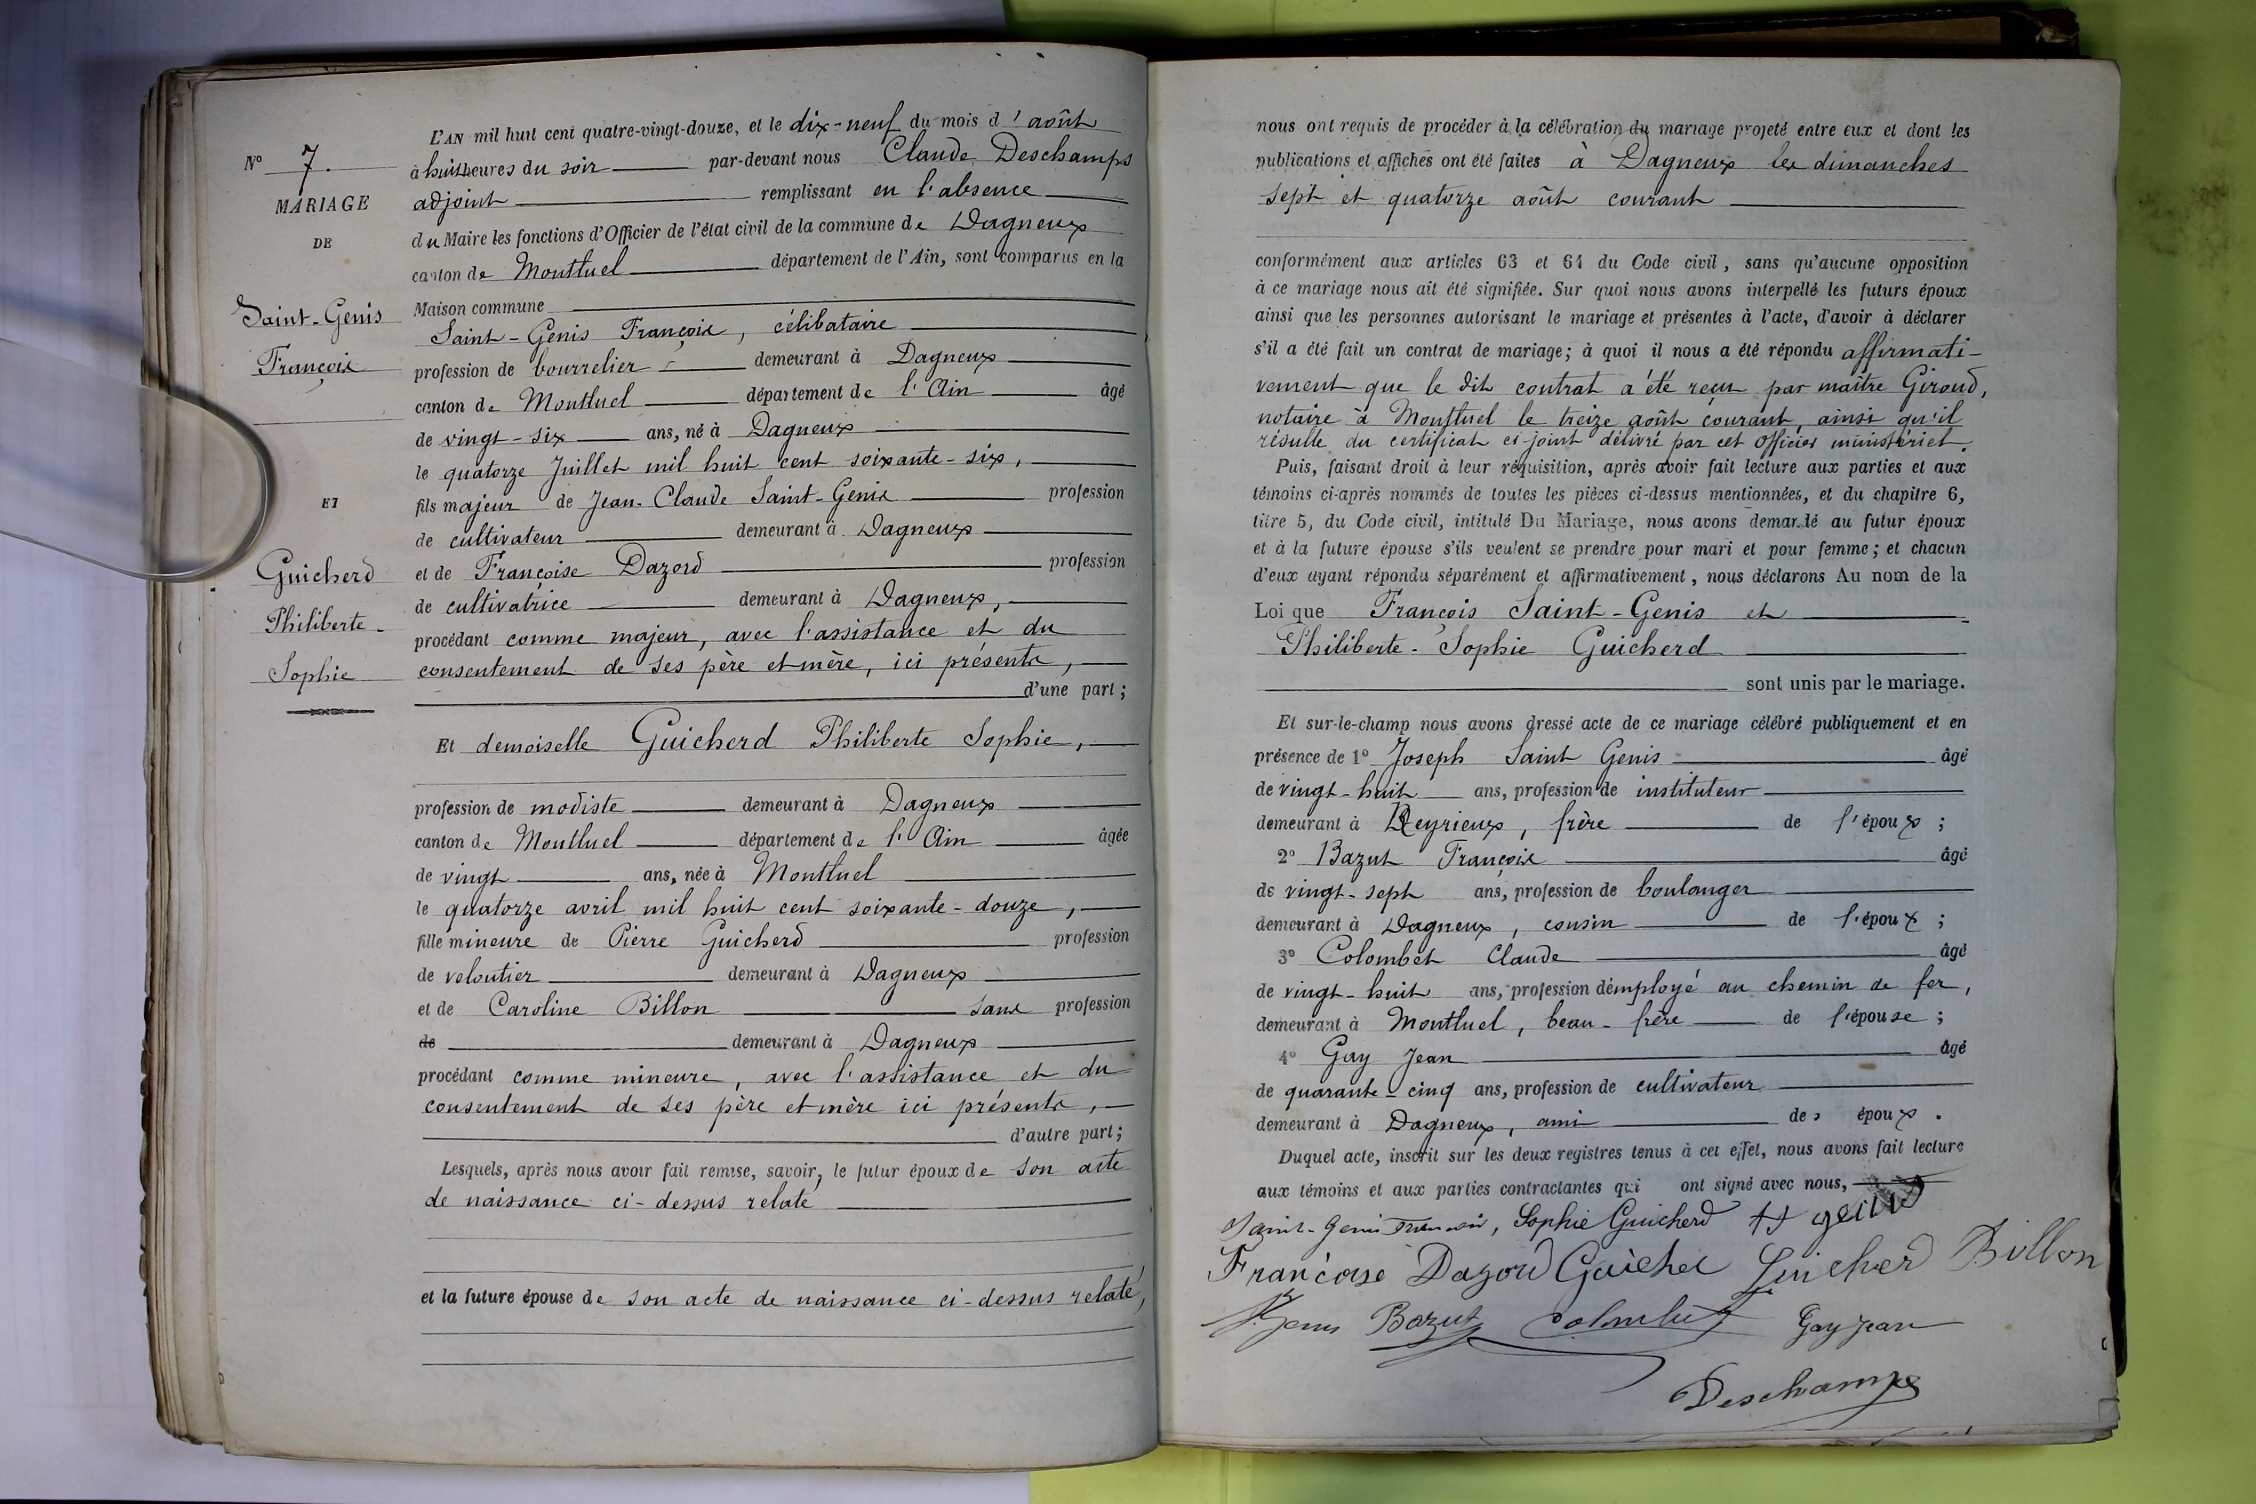 N° 7.
MARIAGE
DE
Saint-Genis
François
ET
Guicherd
Philiberte-
Sophie
L'AN mil huit cent quatre-vingt-douze, et le dix-neuf du mois d'août
à huit heures du soir par-devant nous Claude Deschamps
adjoint remplissant en l'absence
du Maire les fonctions d'Officier de l'état civil de la commune de Dagneux
canton de Montluel département de l'Ain, sont comparus en la
Maison commune
Saint-Genis François, célibataire
profession de bourrelier demeurant à Dagneux
canton de Montluel département de l'Ain âgé
de vingt-six ans, né à Dagneux
le quatorze Juillet mil huit cent soixante-six,
fils majeur de Jean-Claude Saint-Genis profession
de cultivateur demeurant à Dagneux
et de Françoise Dazord profession
de cultivatrice demeurant à Dagneux,
procédant comme majeur, avec l'assistance et du
consentement de ses père et mère, ici présents,
d'une part;
Et demoiselle Guicherd Philiberte Sophie,
profession de modiste demeurant à Dagneux
canton de Montluel département de l'Ain âgée
de vingt ans, née à Montluel
le quatorze avril mil huit cent soixante-douze,
fille mineure de Pierre Guicherd profession
de veloutier demeurant à Dagneux
et de Caroline Billon sans profession
de demeurant à Dagneux
procédant comme mineure, avec l'assistance et du
consentement de ses père et mère ici présents,
d'autre part;
Lesquels, après nous avoir fait remise, savoir, le futur époux de son acte
de naissance ci-dessus relaté
et la future épouse de son acte de naissance ci-dessus relaté,
nous ont requis de procéder à la célébration du mariage projeté entre eux et dont les
publications et affiches ont été faites à Dagneux les dimanches
sept et quatorze août courant
conformément aux articles 63 et 64 du Code civil, sans qu'aucune opposition
à ce mariage nous ait été signifiée. Sur quoi nous avons interpellé les futurs époux
ainsi que les personnes autorisant le mariage et présentes à l'acte, d'avoir à déclarer
s'il a été fait un contrat de mariage; à quoi il nous a été répondu affirmati-
vement que le dit contrat a été reçu par maître Giroud,
notaire à Montluel le treize août courant, ainsi qu'il
résulte du certificat ci-joint délivré par cet officier ministériel.
Puis, faisant droit à leur réquisition, après avoir fait lecture aux parties et aux
témoins ci-après nommés de toutes les pièces ci-dessus mentionnées, et du chapitre 6,
titre 5, du Code civil, intitulé Du Mariage, nous avons demandé au futur époux
et à la future épouse s'ils veulent se prendre pour mari et pour femme; et chacun
d'eux ayant répondu séparément et affirmativement, nous déclarons Au nom de la
Loi que François Saint-Genis et
Philiberte-Sophie Guicherd
sont unis par le mariage.
Et sur-le-champ nous avons dressé acte de ce mariage célébré publiquement et en
présence de 1° Joseph Saint Genis âgé
de vingt-huit ans, profession de instituteur
demeurant à Reyrieux, frère de l'époux;
2° Bazut François âgé
de vingt-sept ans, profession de boulanger
demeurant à Dagneux, cousin de l'époux;
3° Colombet Claude âgé
de vingt-huit ans, profession d'employé au chemin de fer,
demeurant à Montluel, beau-frère de l'épouse;
4° Gay Jean âgé
de quarante-cinq ans, profession de cultivateur
demeurant à Dagneux, ami des époux.
Duquel acte, inscrit sur les deux registres tenus à cet effet, nous avons fait lecture
aux témoins et aux parties contractantes qui ont signé avec nous,
Saint-Genis François, Sophie Guicherd St genis
Françoise Dazord Guicher Guicherd Billon
St Genis Bazut Colombet Gay Jean
Deschamps